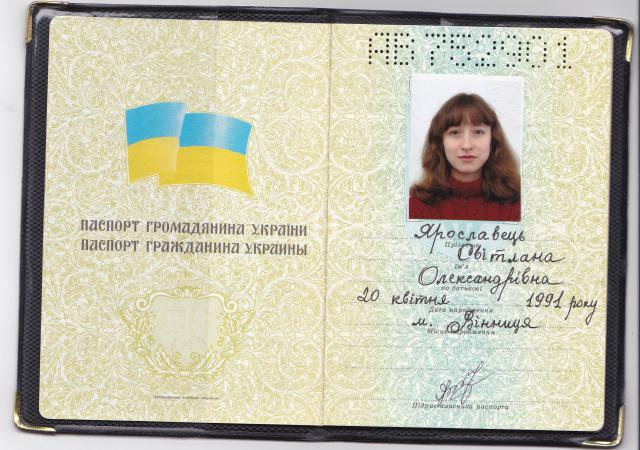 ПАСПОРТ ГРОМАДЯНИНА УКРАЇНИ
ПАСПОРТ ГРАЖДАНИНА УКРАИНЫ
АВ 752901
Ярославець
Прізвище
Світлана
Ім'я
Олександрівна
по батькові
20 квітня 1991 року
Дата народження
м. Вінниця
Місце народження
Підпис власника паспорта